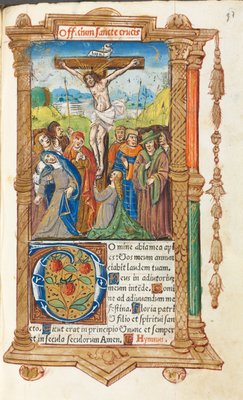 Officium sancte crucis
INRI
Omine labia mea ape
ries: Et os meum annun
ciabit laudem tuam.
Deus in adiutorium
meum intēde. Domi
ne ad adiuuandum me
festina. Gloria patri
et filio et spiritui san
cto. Sicut erat in principio et nunc et semper
et in secula seculorum Amen. Hymnus.